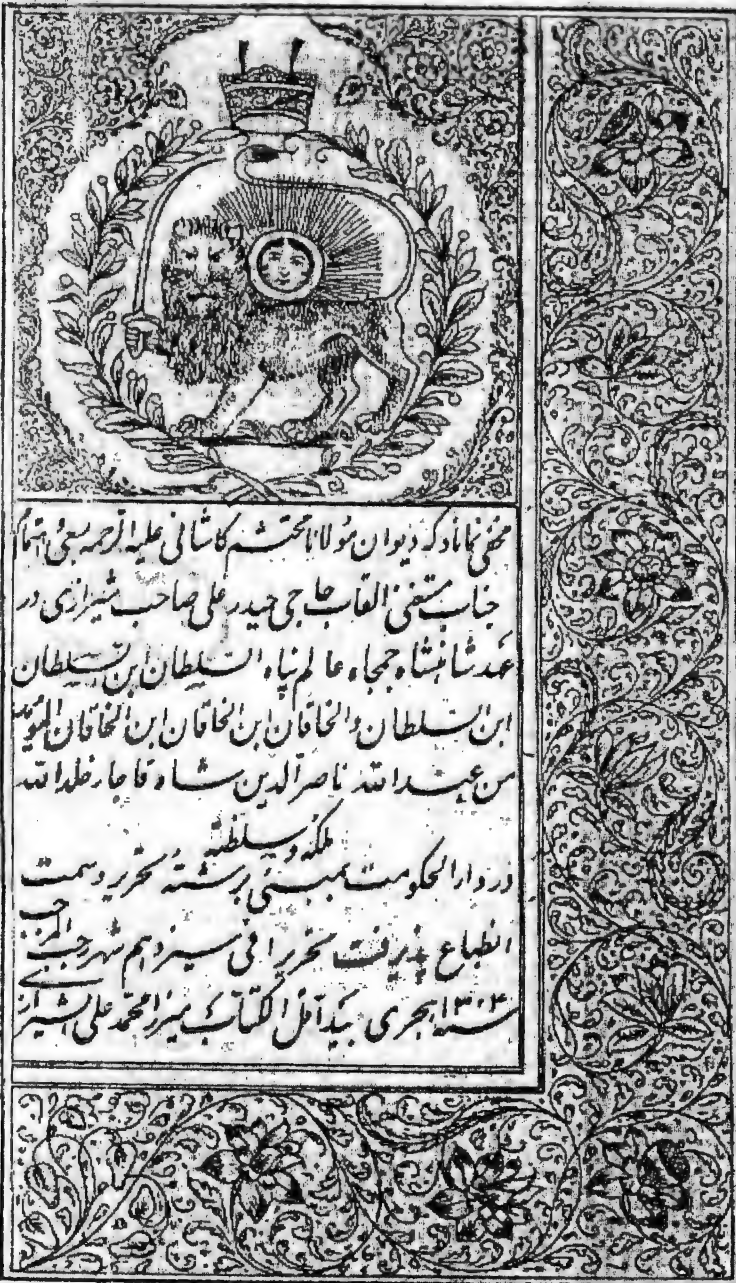 مخفی نماناد که دیوان مولانا محتشم کاشانی علیه الرحمه بسعی و اهتمام
جناب مستغنی القاب حاجی حیدر علی صاحب شیرازی در
عهد شاهنشاه جمجاه عالم پناه السلطان ابن السلطان
ابن السلطان والخاقان ابن الخاقان ابن الخاقان المؤید
من عند الله ناصر الدین شاه قاجار خلد الله
ملکه و سلطنه
در دار الحکومت بمبئی برشته تحریر و سمت
انطباع پذیرفت تحریرا فی سیزدهم شهر رجب المرجب
سنه ۱۳۰۴ هجری بید اقل الکتاب میرزا محمد علی الشیرازی